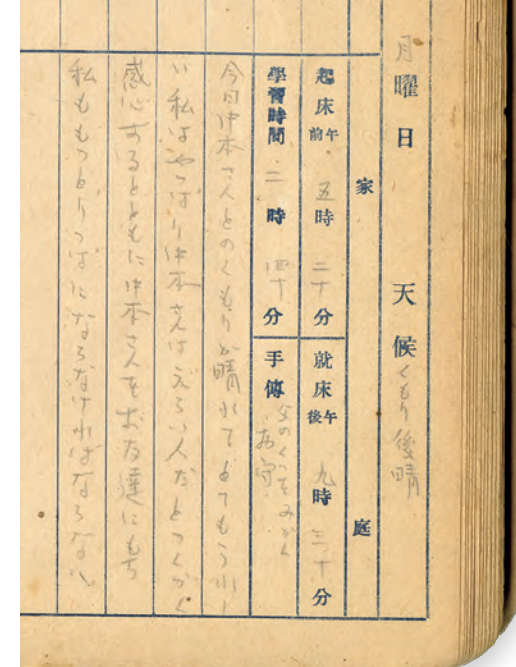 月曜日 天候 くもり後晴
家庭
起床 午前 五時 二十分 就床 午後 九時 三十分
學習時間 二時 四十分 手傳 父のくつをみがく お守
今日中本さんとのくもりが晴れてとてもうれし
い 私はやっぱり中本さんはえらい人だとつくづく
感心するとともに中本さんをお友達にもち
私ももっとりっぱにならなければならない